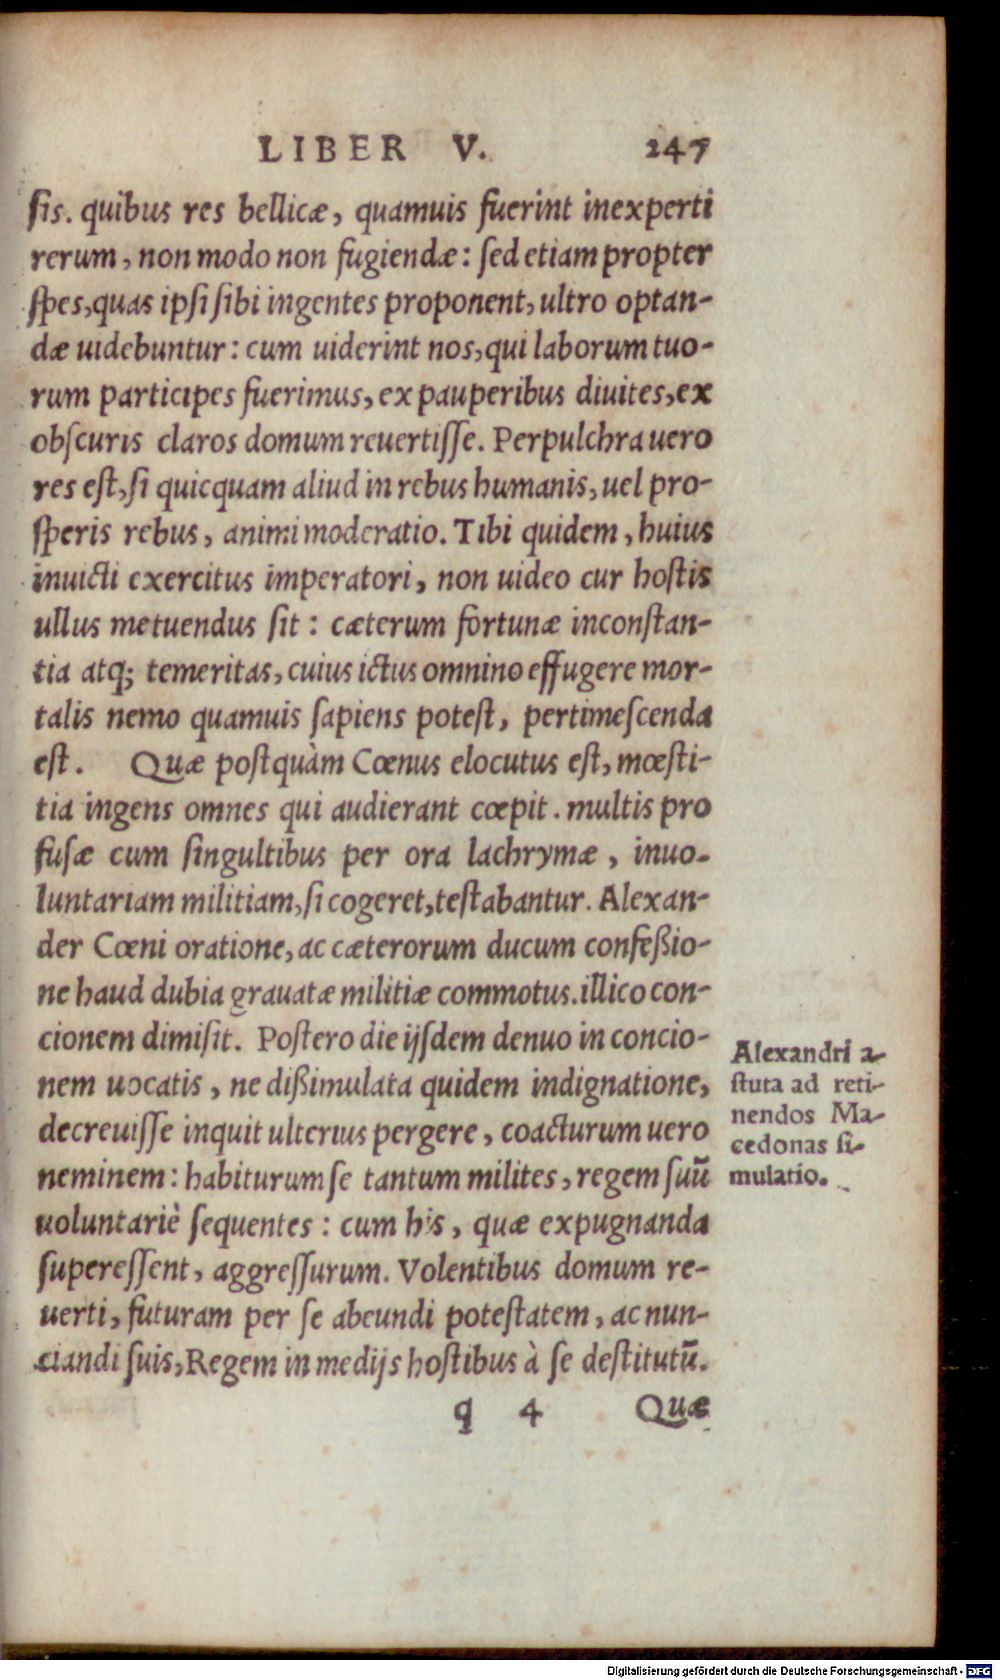 LIBER V. 247
sis. quibus res bellicæ, quamuis fuerint inexperti
rerum, non modo non fugiendæ: sed etiam propter
spes, quas ipsi sibi ingentes proponent, ultro optan-
dæ uidebuntur: cum uiderint nos, qui laborum tuo-
rum participes fuerimus, ex pauperibus diuites, ex
obscuris claros domum reuertisse. Perpulchra uero
res est, si quicquam aliud in rebus humanis, uel pro-
speris rebus, animi moderatio. Tibi quidem, huius
inuicti exercitus imperatori, non uideo cur hostis
ullus metuendus sit: cæterum fortunæ inconstan-
tia atq; temeritas, cuius ictus omnino effugere mor-
talis nemo quamuis sapiens potest, pertimescenda
est. Quæ postquàm Cœnus elocutus est, mœsti-
tia ingens omnes qui audierant cœpit. multis pro
fusæ cum singultibus per ora lachrymæ, inuo-
luntariam militiam, si cogeret, testabantur. Alexan-
der Cœni oratione, ac cæterorum ducum confeßio-
ne haud dubia grauatæ militiæ commotus. illico con-
cionem dimisit. Postero die ijsdem denuo in concio-
nem uocatis, ne dißimulata quidem indignatione,
decreuisse inquit ulterius pergere, coacturum uero
neminem: habiturum se tantum milites, regem suū
uoluntariè sequentes: cum his, quæ expugnanda
superessent, aggressurum. Volentibus domum re-
uerti, futuram per se abeundi potestatem, ac nun-
ciandi suis, Regem in medijs hostibus à se destitutū.
q 4 Quæ
Alexandri a-
stuta ad reti-
nendos Ma-
cedonas si-
mulatio.
Digitalisierung gefördert durch die Deutsche Forschungsgemeinschaft - DFG